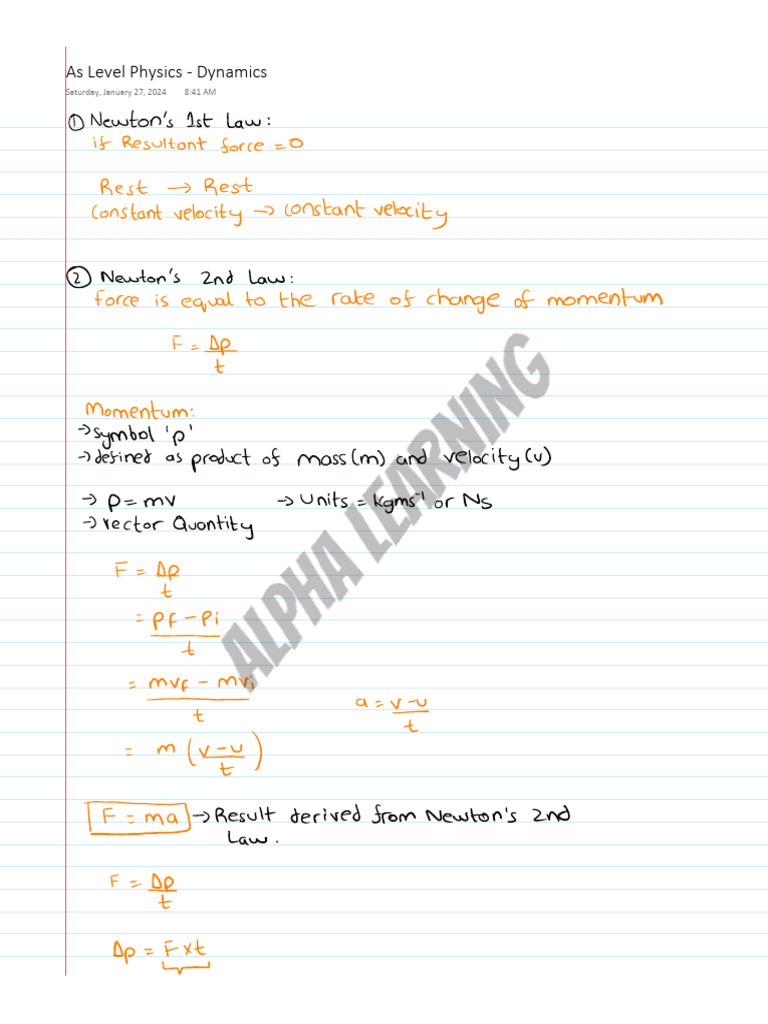 As Level Physics - Dynamics
Saturday, January 27, 2024 8:41 AM
① Newton's 1st Law:
if Resultant force = 0
Rest → Rest
Constant velocity → constant velocity
② Newton's 2nd Law:
force is equal to the rate of change of momentum
F = Δp/t
Momentum:
→ symbol 'p'
→ defined as product of mass(m) and velocity(v)
→ p = mv → Units = kgms⁻¹ or Ns
→ vector Quontity
F = Δp/t
= pf - pi/t
= mvf - mvi/t
a = v-u/t
= m (v-u/t)
F = ma → Result derived from Newton's 2nd
Law.
F = Δp/t
Δp = F×t
ALPHA LEARNING